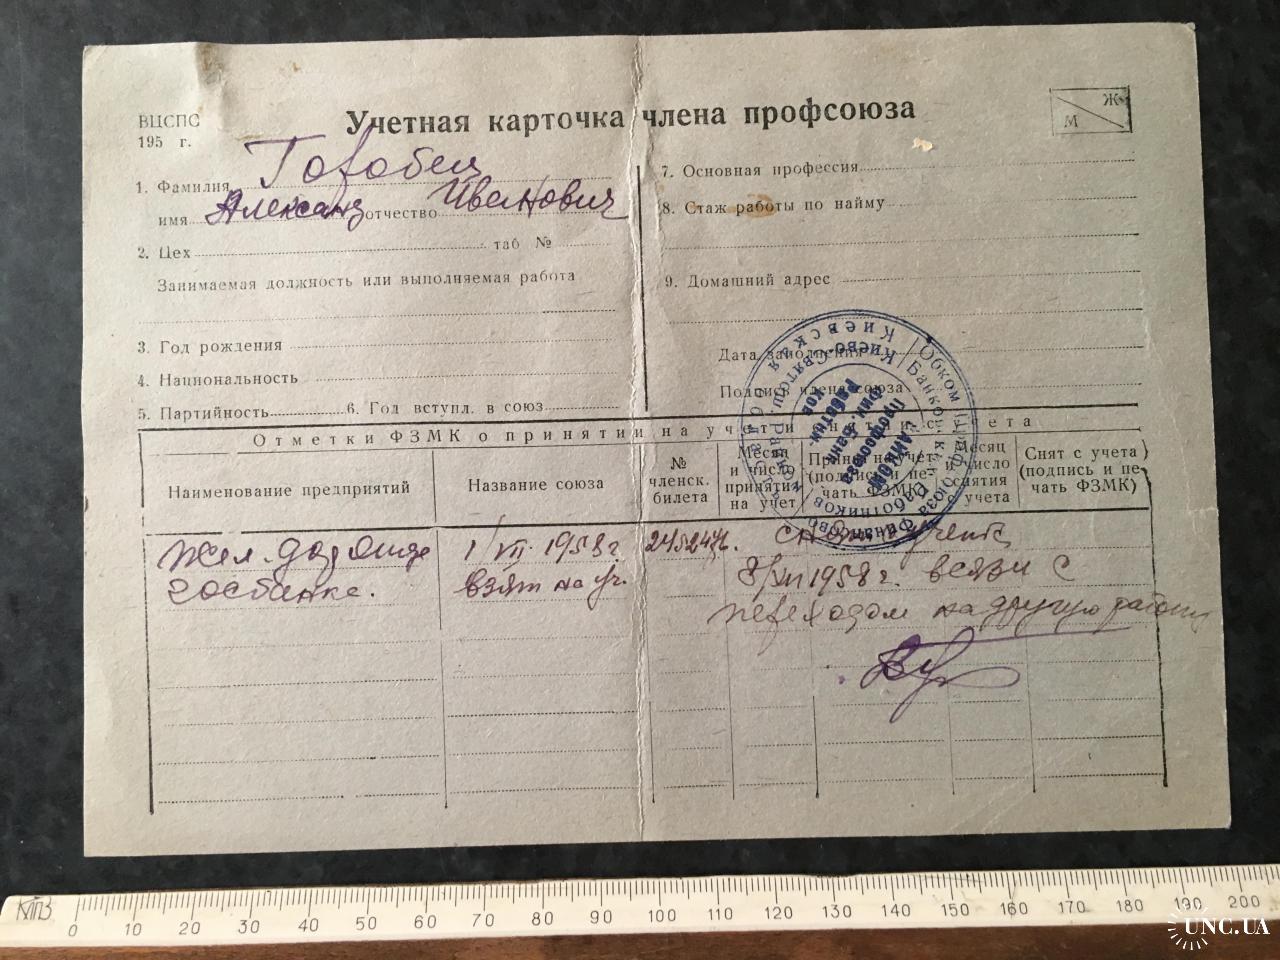 ВЦСПС
195 г.
Учетная карточка члена профсоюза
Ж
М
1. Фамилия Горобец
имя Александ отчество Иванович
2. Цех таб №
Занимаемая должность или выполняемая работа
3. Год рождения
4. Национальность
5. Партийность 6. Год вступл. в союз
7. Основная профессия
8. Стаж работы по найму
9. Домашний адрес
Дата заполнения
Подпись члена союза
Обком Профсоюза Финансово
Банковских Работников
Киевская область
Киево-Святош. района
Райком
Профсоюза
Фин. Банк.
Работни-
ков
Отметки ФЗМК о принятии на учет и снятии с учета
Наименование предприятий
Название союза
№
членск.
билета
Месяц
и число
принятия
на учет
Принят на учет
(подпись и пе-
чать ФЗМК)
Месяц
и число
снятия
с учета
Снят с учета
(подпись и пе-
чать ФЗМК)
Жел. дор отде
госбанка.
1/VII. 1958 г.
взят на уч.
снят с учета
1958 г. всязи с
переходом на другую работу
КПЗ
0 10 20 30 40 50 60 70 80 90 100 110 120 130 140 150 160 170 180 190 200
UNC.UA